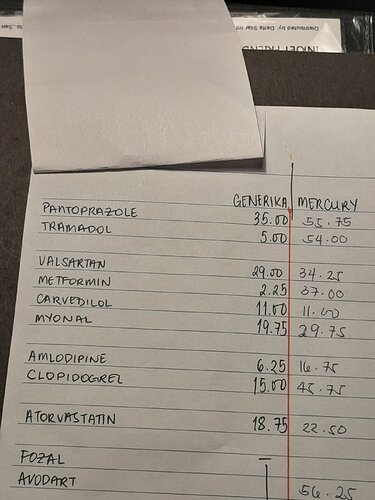 Distributed by Delta Star
INKJET FRIEND
GENERIKA MERCURY
PANTOPRAZOLE 35.00 55.75
TRAMADOL 5.00 54.00
VALSARTAN 29.00 34.25
METFORMIN 2.25 37.00
CARVEDILOL 11.00 11.00
MYONAL 19.75 29.75
AMLODIPINE 6.25 16.75
CLOPIDOGREL 15.00 45.75
ATORVASTATIN 18.75 22.50
FOZAL —
AVODART 56.25